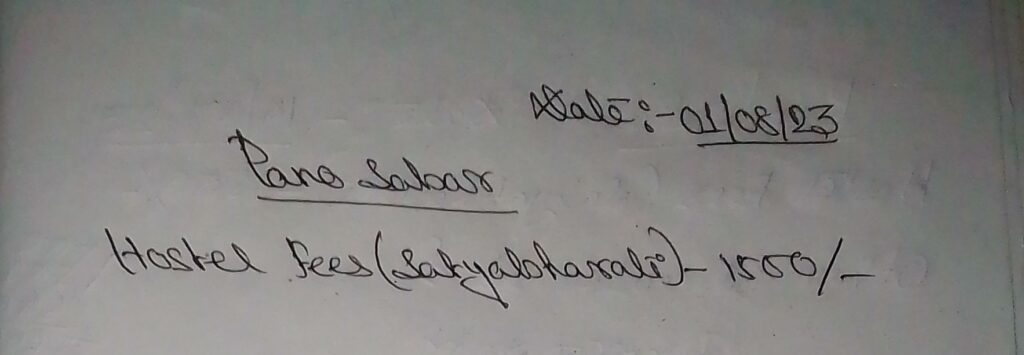 Date:-01/08/23
Pano Sabar
Hostel fees (Satyabharati)- 1500/-